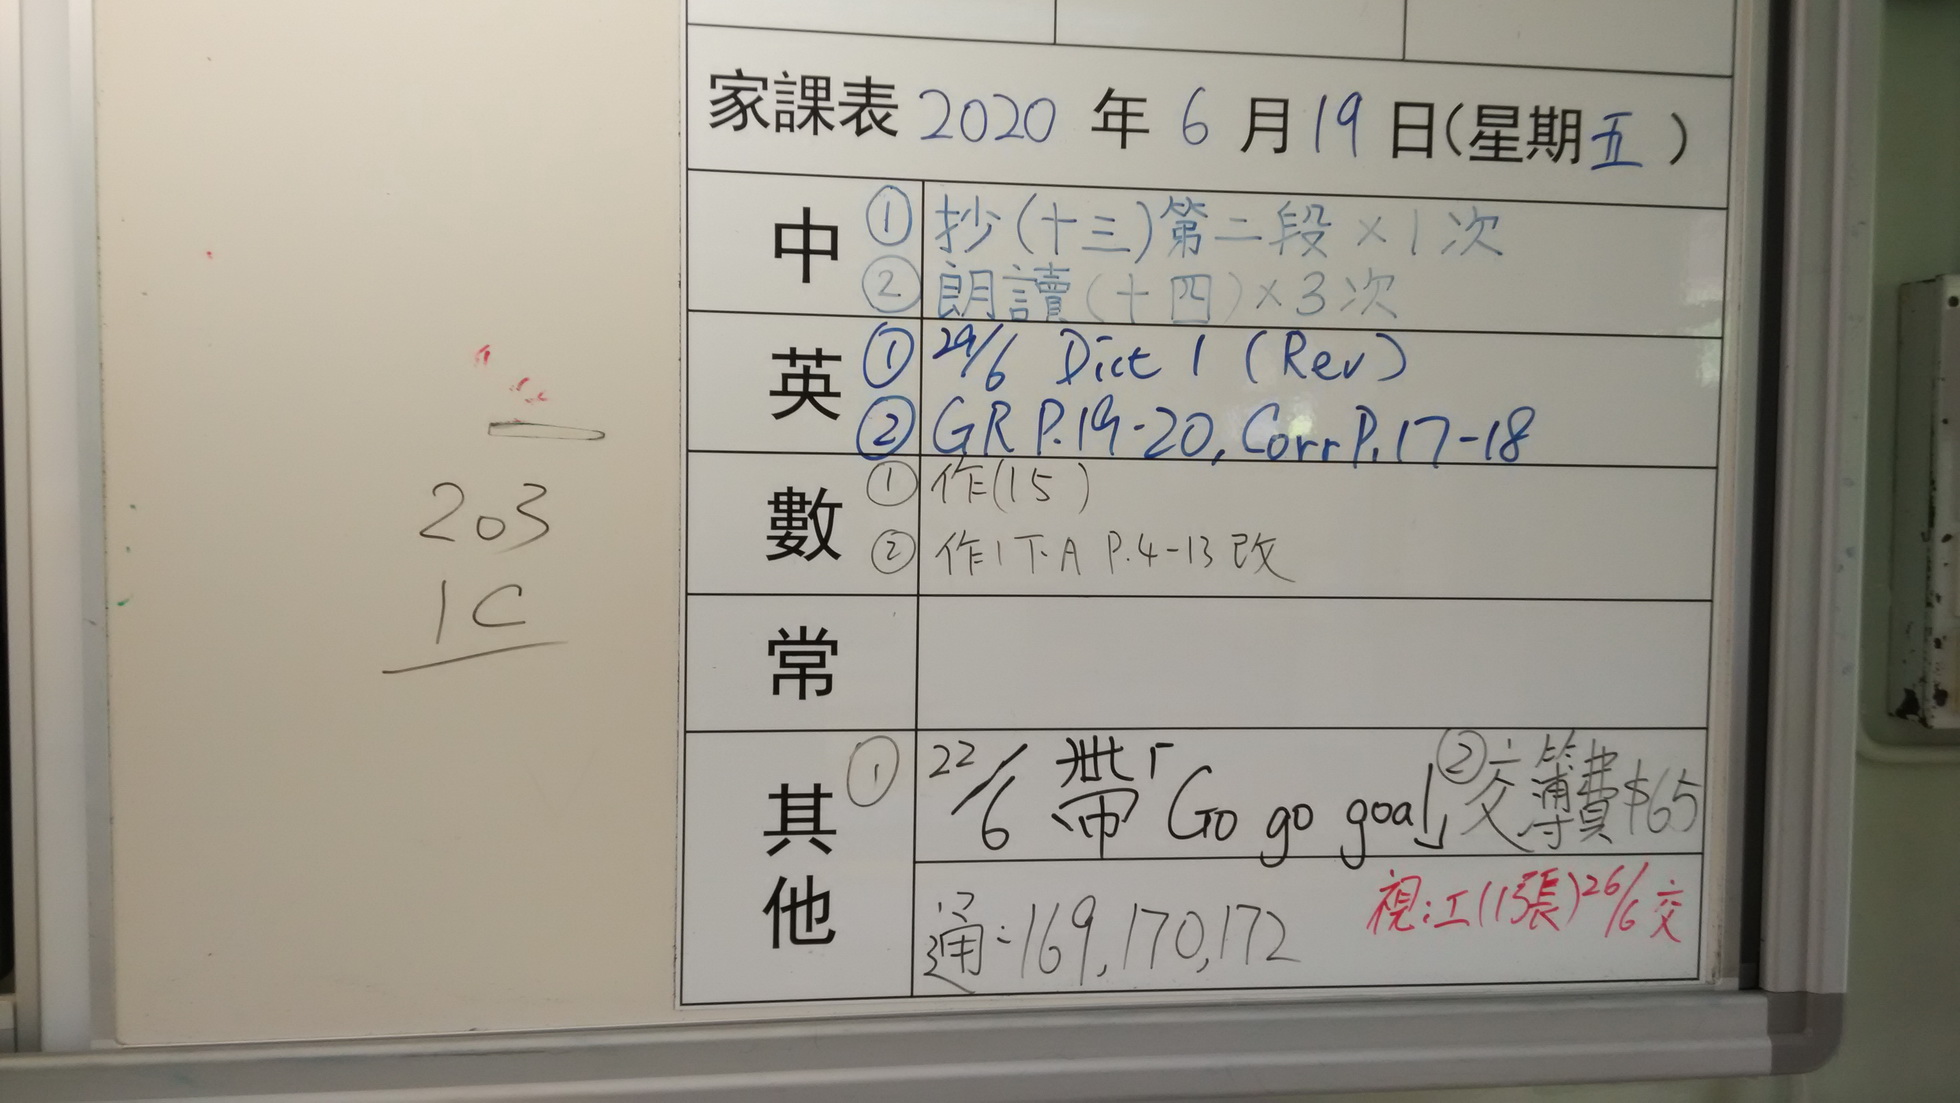 家課表 2020 年 6 月 19 日(星期五)
中 ① 抄(十三)第二段×1次
② 朗讀(十四)×3次
英 ① 29/6 Dict 1 (Rev)
② GR P.19-20, Corr P.17-18
數 ① 作(15)
② 作1下A P.4-13改
常
其他 ① 22/6 帶「Go go goal」 ② 交簿費$65
通:169,170,172 視:工(13張)26/6交
203
1C